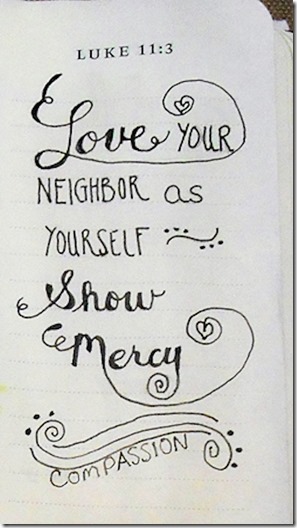 LUKE 11:3
Love YOUR
NEIGHBOR as
YOURSELF
Show
Mercy
COMPASSION